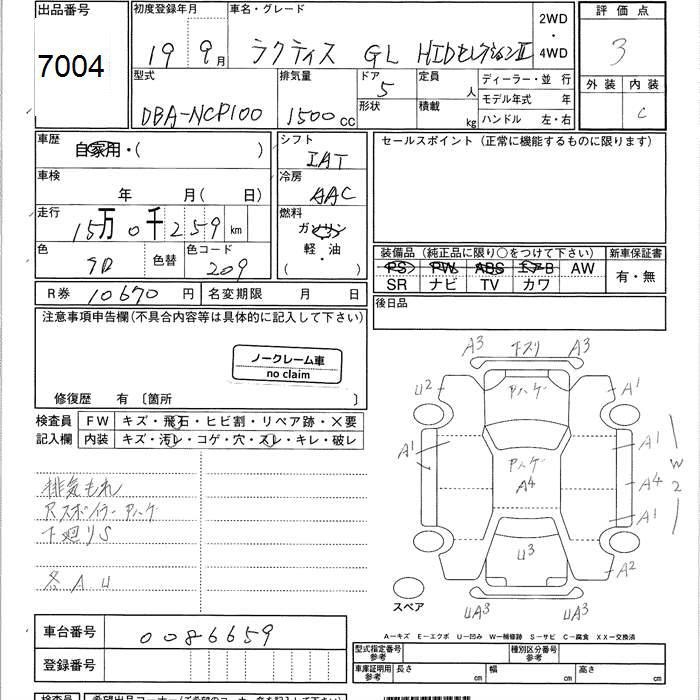 出品番号 初度登録年月 車名・グレード 2WD・4WD 評価点
7004 19 9月 ラクティス GL HIDセレクションⅡ 3
型式 排気量 ドア 定員 人 ディーラー・並 行 外装 内装
DBA-NCP100 1500cc 5 形状 積載 kg モデル年式 年 C
ハンドル 左・右
車歴 自家用・( ) シフト IAT セールスポイント(正常に機能するものに限ります)
車検 年 月( 日) 冷房 AAC
走行 15万0千259km 燃料 ガソリン
色 色替 色コード 209 軽・油
( )
装備品(純正品に限り○をつけて下さい) 新車保証書
PS PW ABS エアB AW 有・無
SR ナビ TV カワ
R券 10670円 名変期限 月 日 後日品
注意事項申告欄(不具合内容等は具体的に記入して下さい)
ノークレーム車
no claim
修復歴 有〔箇所 〕
検査員 FW キズ・飛石・ヒビ割・リペア跡・×要
記入欄 内装 キズ・汚レ・コゲ・穴・スレ・キレ・破レ
排気もれ
Rスポイラー アハゲ
下廻りS
各AU
A3 下スリ A3
U2 アハゲ A1
A1 A1
アハゲ W2
A4 A4
A1
U3 A2
スペア UA3 UA3
A-キズ E-エクボ U-凹み W-補修跡 S-サビ C-腐食 XX-交換済
車台番号 0086659
登録番号
型式指定番号 参考 種別区分番号 参考
車庫証明用 参考 長さ cm 幅 cm 高さ cm
検査員 希望出品コーナー(ご希望のコーナー名を記入して下さい)